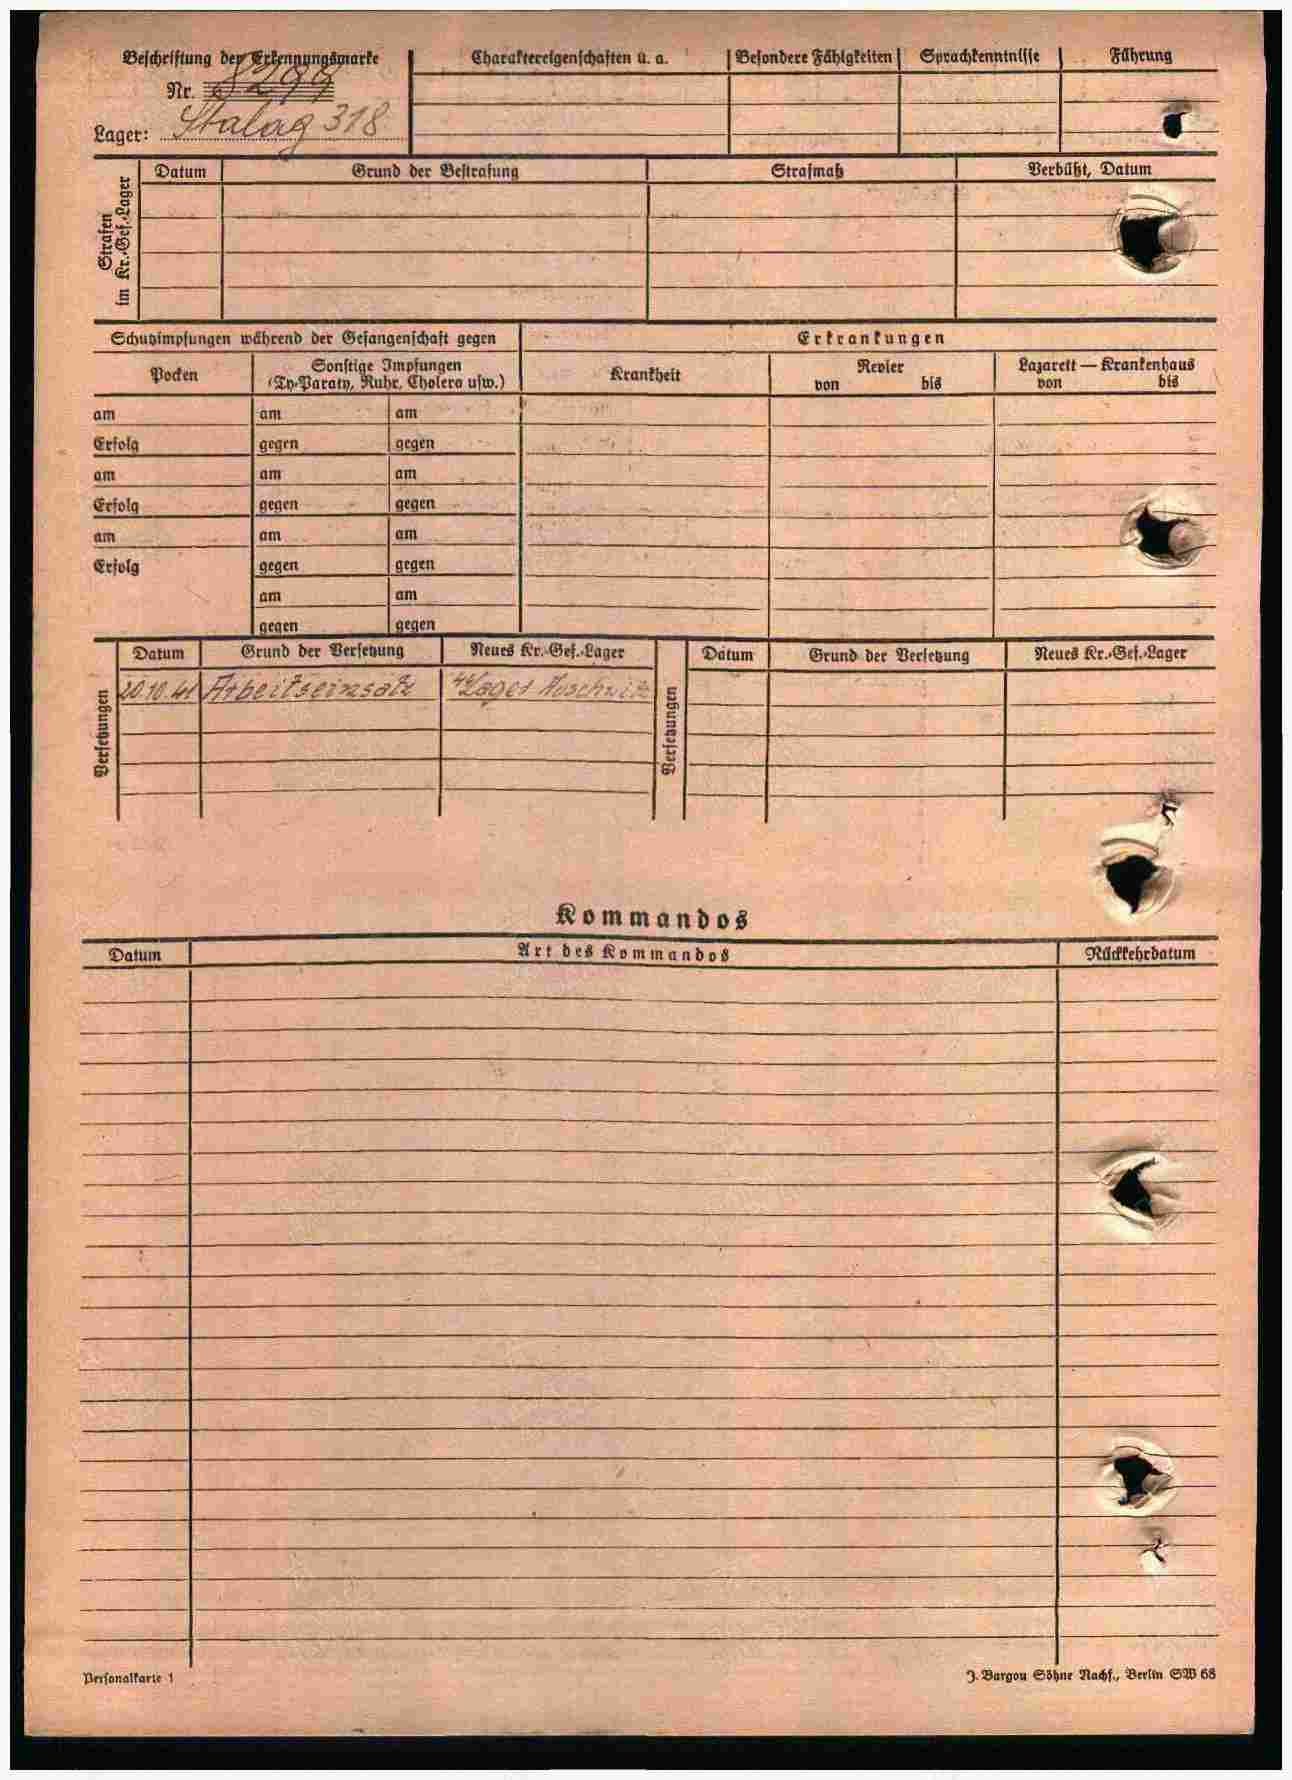 Beschriftung der Erkennungsmarke
Nr. 8299
Lager: Stalag 318
Charaktereigenschaften u. a.
Besondere Fähigkeiten
Sprachkenntnisse
Führung
Strafen im Kr.-Gef.-Lager
Datum
Grund der Bestrafung
Strafmaß
Verbüßt, Datum
Schutzimpfungen während der Gefangenschaft gegen
Erkrankungen
Pocken
Sonstige Impfungen
(Ty-Paraty, Ruhr, Cholera usw.)
Krankheit
Revier
von bis
Lazarett — Krankenhaus
von bis
am am am
Erfolg gegen gegen
am am am
Erfolg gegen gegen
am am am
Erfolg gegen gegen
am am
gegen gegen
Versetzungen
Datum Grund der Versetzung Neues Kr.-Gef.-Lager
20.10.41 Arbeitseinsatz Lager Auschwitz
Versetzungen
Datum Grund der Versetzung Neues Kr.-Gef.-Lager
Kommandos
Datum Art des Kommandos Rückkehrdatum
Personalkarte 1
J. Bargou Söhne Nachf., Berlin SW 68